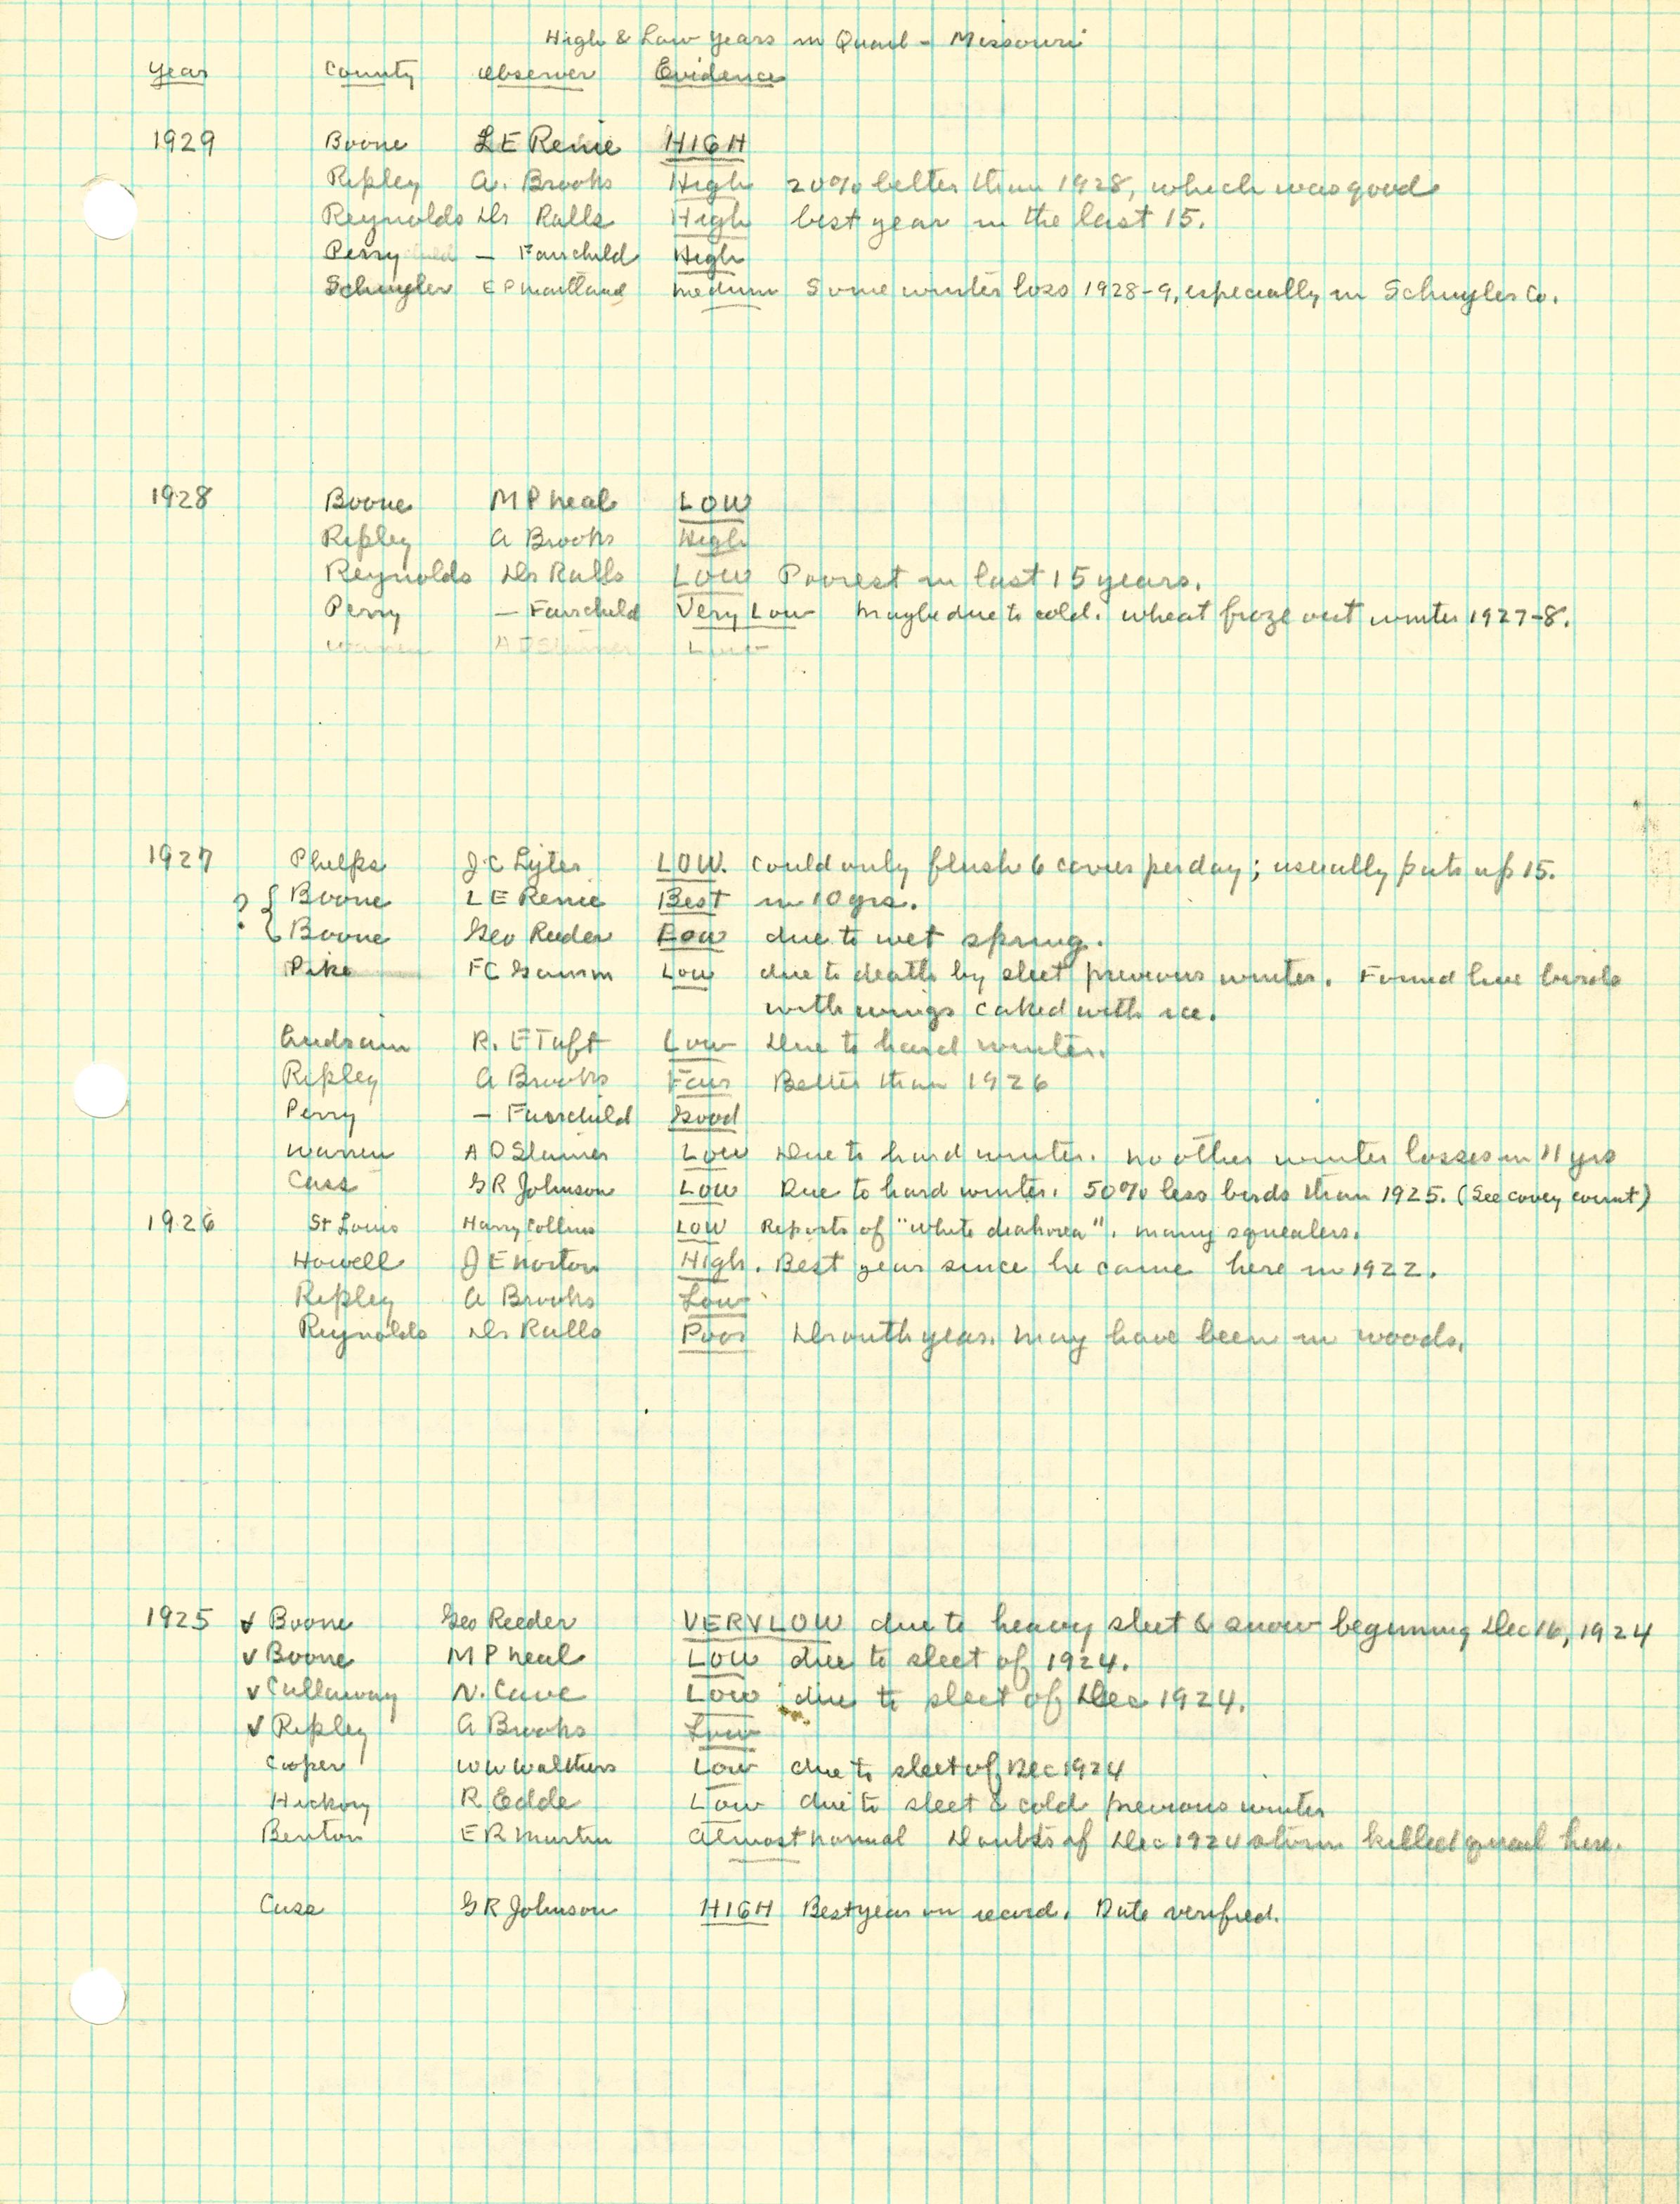 High & Low Years in Quail - Missouri
Year County Observer Evidence
1929 Boone L E Renie HIGH
Ripley A. Brooks High 20% better than 1928, which was good
Reynolds Dr Ralls High best year in the last 15.
Perry — Fairchild High
Schuyler E P Maitland medium Some winter loss 1928-9, especially in Schuyler Co.
1928 Boone M P Neal LOW
Ripley A Brooks High
Reynolds Dr Ralls Low Poorest in last 15 years.
Perry — Fairchild Very Low Maybe due to cold. Wheat froze out winter 1927-8.
Warren A D Low
1927 Phelps J C Lytes LOW. Could only flush 6 covies per day; usually puts up 15.
? { Boone L E Renie Best in 10 yrs.
Boone Geo Reeder Low due to wet spring.
Pike F C Gamm Low due to death by sleet previous winter. Found live birds
with wings caked with ice.
Audrain R. E Taft Low Due to hard winter.
Ripley A Brooks Fair Better than 1926
Perry — Fairchild Good
Warren A D Low Due to hard winter. No other winter losses in 11 yrs
Cass G R Johnson Low Due to hard winter. 50% less birds than 1925. (See covey count)
1926 St Louis Harry Collins LOW Reports of "white diahorea". Many squealers.
Howell J E Norton High. Best year since he came here in 1922.
Ripley A Brooks Low
Reynolds Dr Ralls Poor Drouth year. May have been in woods.
1925 ✓ Boone Geo Reeder VERY LOW due to heavy sleet & snow beginning Dec 16, 1924
✓ Boone M P Neal LOW due to sleet of 1924.
✓ Callaway N. Cave Low due to sleet of Dec 1924.
✓ Ripley A Brooks Low
Cooper W W Walthers Low due to sleet of Dec 1924
Hickory R Edde Low due to sleet & cold previous winter
Benton E R Martin Almost normal Doubts if Dec 1924 storm killed quail here.
Cass G R Johnson HIGH Best year on record. Date verified.